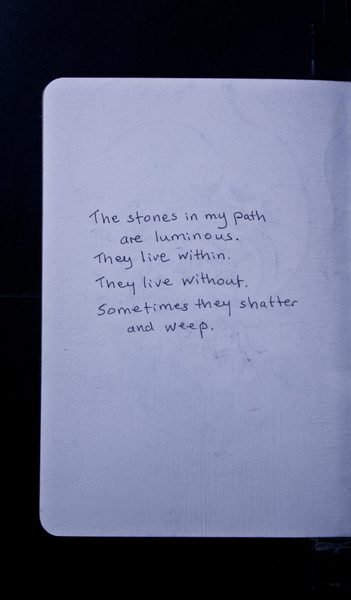 The stones in my path
are luminous.
They live within.
They live without.
Sometimes they shatter
and weep.